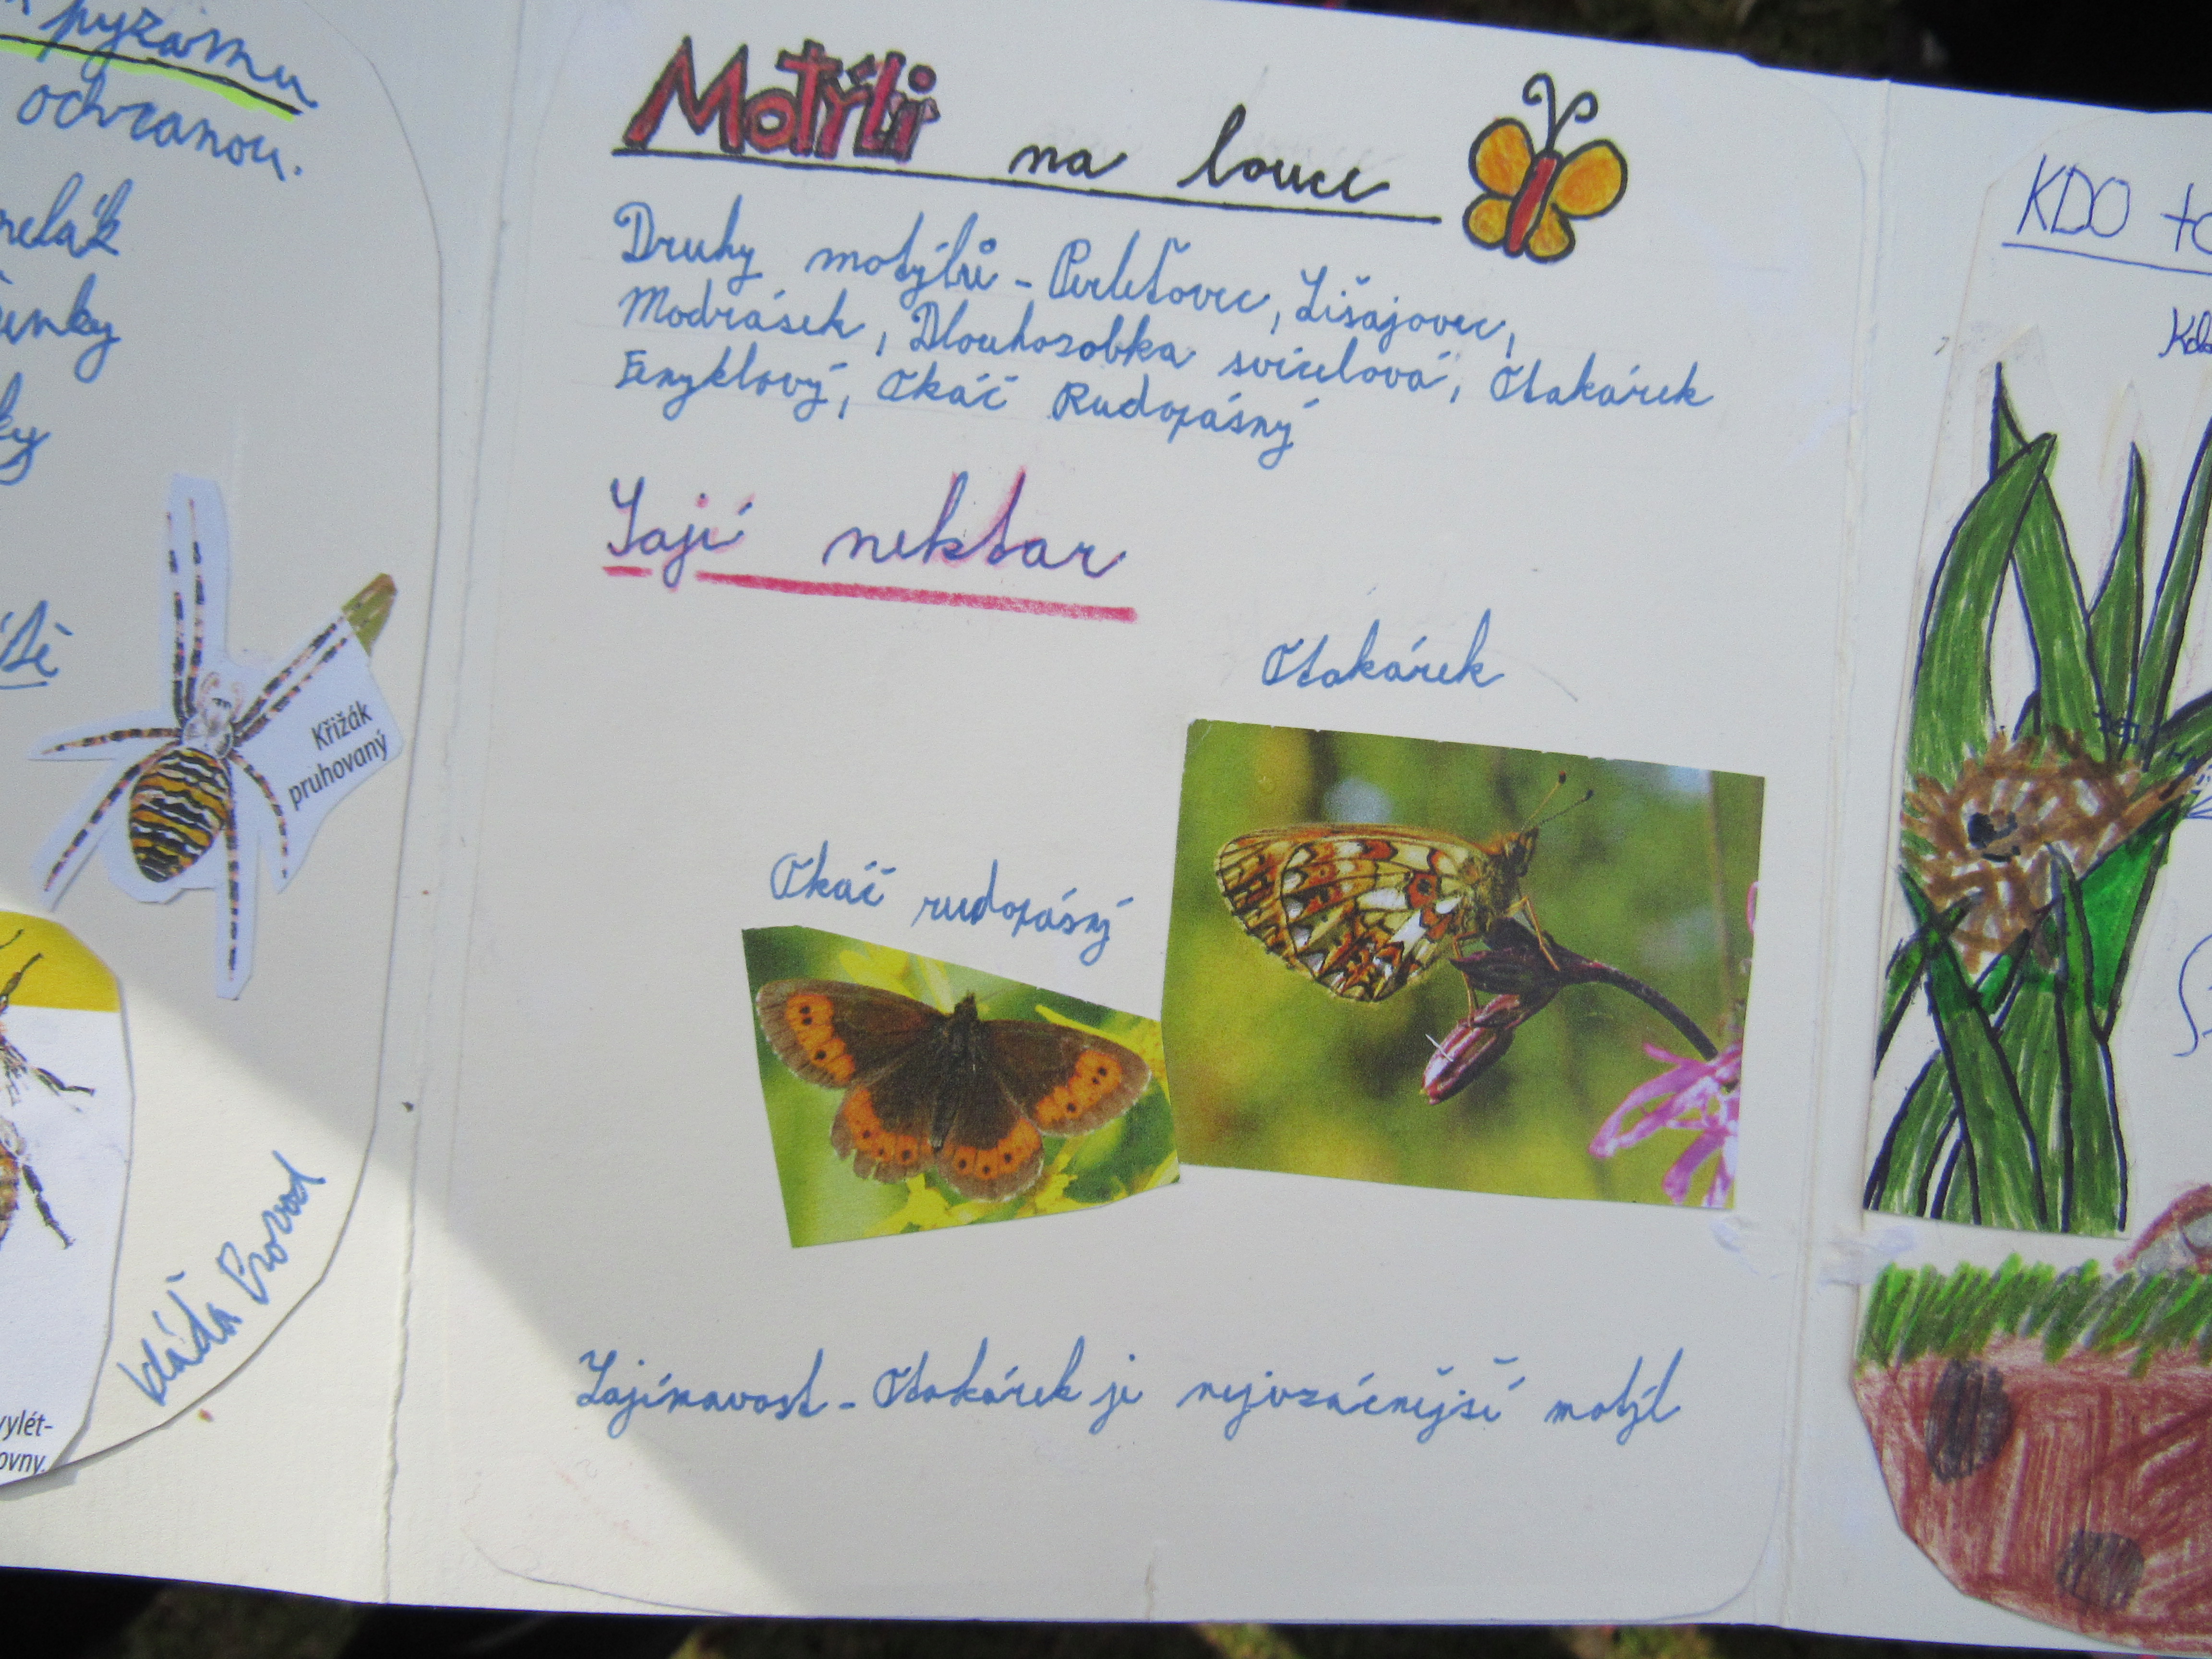 pyžamu
ochranou.
Křižák
pruhovaný
Vláďa Provod
vylét-
ovny.
Motýli na louce
Druhy motýlů - Perleťovec, Lišajovec,
Modrásek, Dlouhozobka svízelová, Otakárek
Fenyklový, Okáč Rudopásný
Jají nektar
Otakárek
Okáč rudopásný
Zajímavost - Otakárek je nejvzácnější motýl
KDO